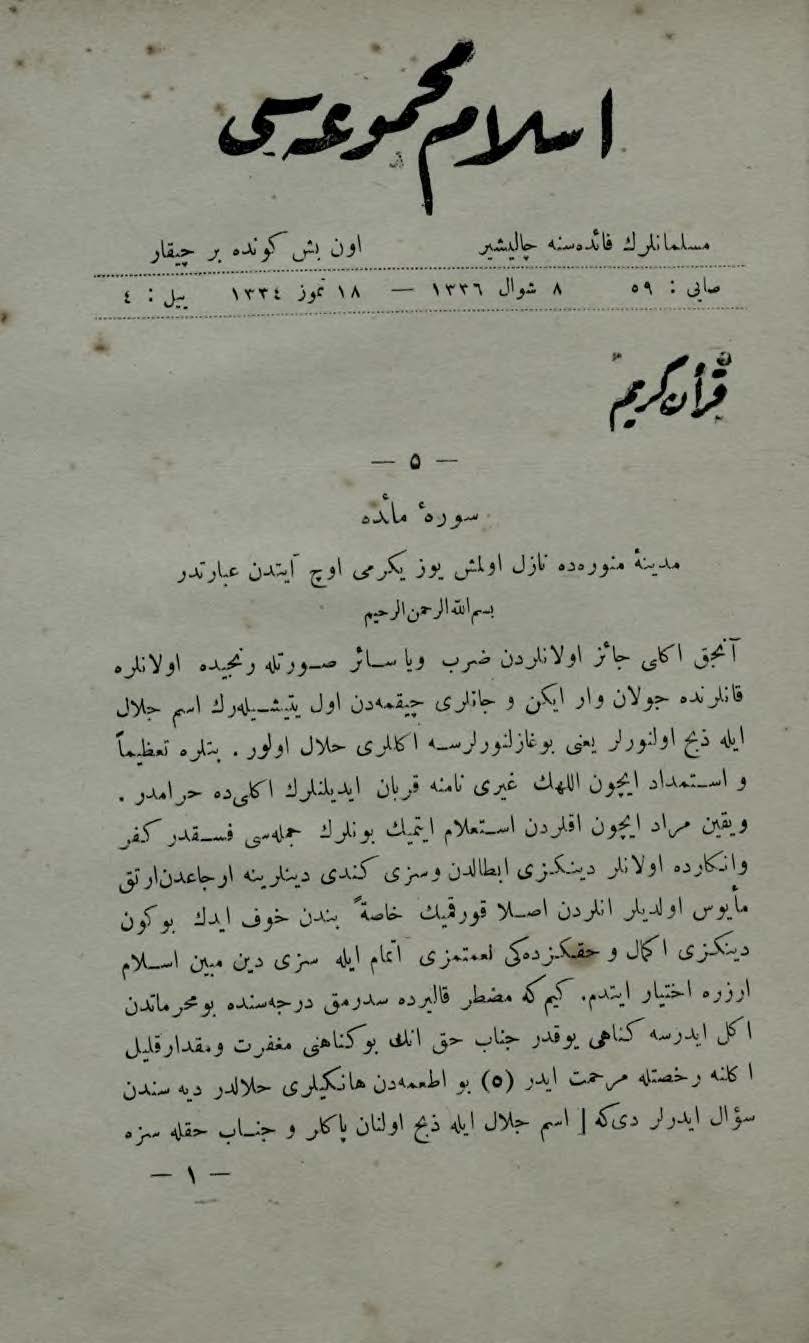 اسلام مجموعه‌سی
مسلمانلرك فائده‌سنه چالیشیر
اون بش كونده بر چیقار
صایی : ٥٩
٨ شوال ١٣٣٦ — ١٨ تموز ١٣٣٤
ییل : ٤
قرآن كریم
— ٥ —
سورهٔ مائده
مدینهٔ منوره‌ده نازل اولمش یوز یكرمی اوچ آیتدن عبارتدر
بسم الله الرحمن الرحیم
آنجق اكلی جائز اولانلردن ضرب ویا سائر صورتله رنجیده اولانلره
قانلرنده جولان وار ایكن و جانلری چیقمه‌دن اول یتیشیله‌رك اسم جلال
ایله ذبح اولنورلر یعنی بوغازلنورلرسه اكللری حلال اولور . بتلره تعظیماً
و استمداد ایچون اللهك غیری نامنه قربان ایدیلنلرك اكلی‌ده حرامدر .
ویقین مراد ایچون اقلردن استعلام ایتمیك بونلرك جمله‌سی فسقدر كفر
وانكارده اولانلر دینكزی ابطالدن وسزی كندی دینلرینه ارجاعدن‌ارتق
مأیوس اولدیلر انلردن اصلا قورقمیك خاصةً بندن خوف ایدك بوكون
دینكزی اكمال و حقكزده‌كی نعمتمزی اتمام ایله سزی دین مبین اسلام
ارزره اختیار ایتدم. كیم‌كه مضطر قالیرده سدرمق درجه‌سنده بومحرماتدن
اكل ایدرسه كناهی یوقدر جناب حق انك بوكناهنی مغفرت ومقدارقلیل
اكلنه رخصتله مرحمت ایدر (٥) بو اطعمه‌دن هانكیلری حلالدر دیه سندن
سؤال ایدرلر دی‌كه [ اسم جلال ایله ذبح اولنان پاكلر و جناب حقله سزه
— ١ —